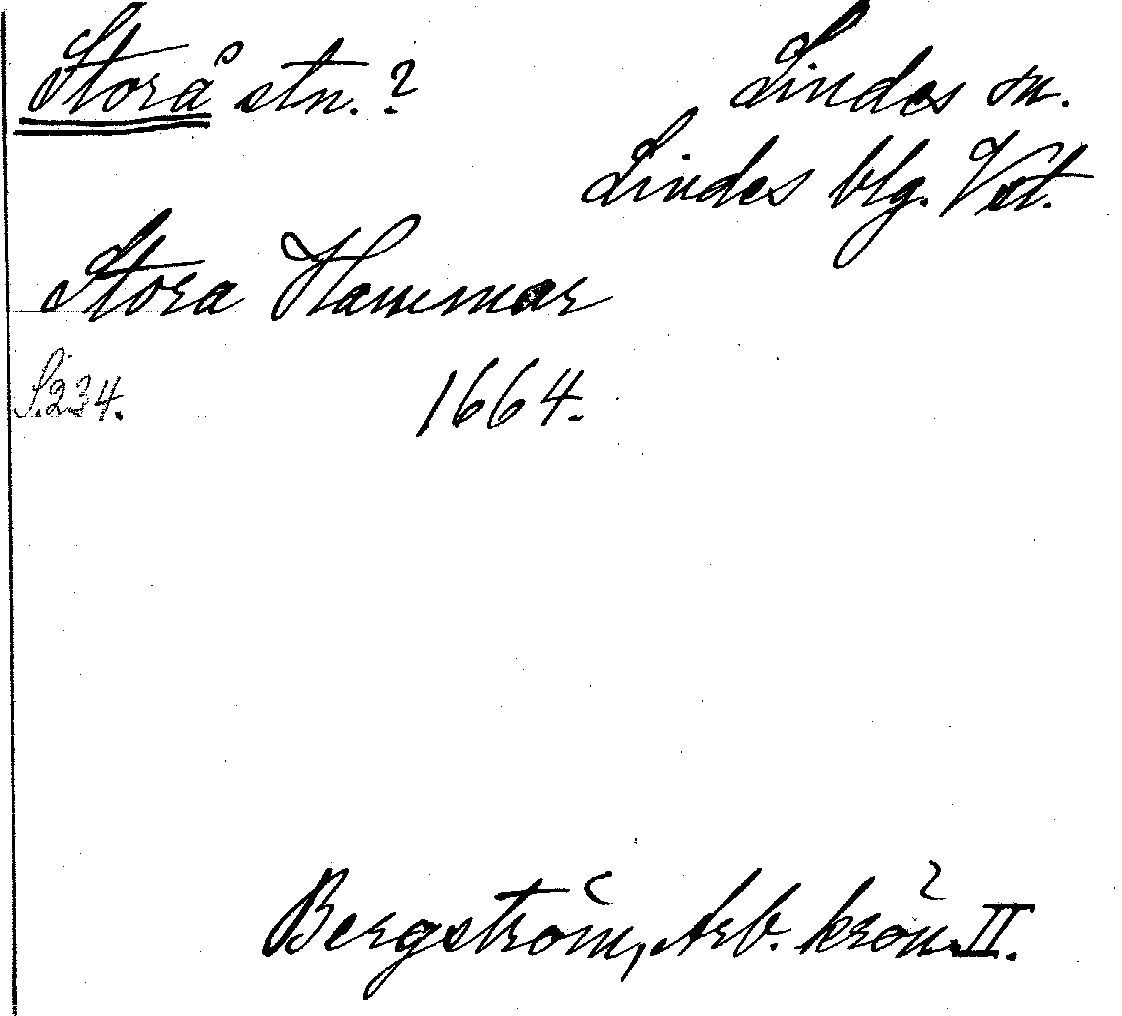 Storå stn.?
Lindes sn.
Lindes blg. Vst.
Stora Hammar
S. 234.
1664.
Bergström, Arb. krön. II.